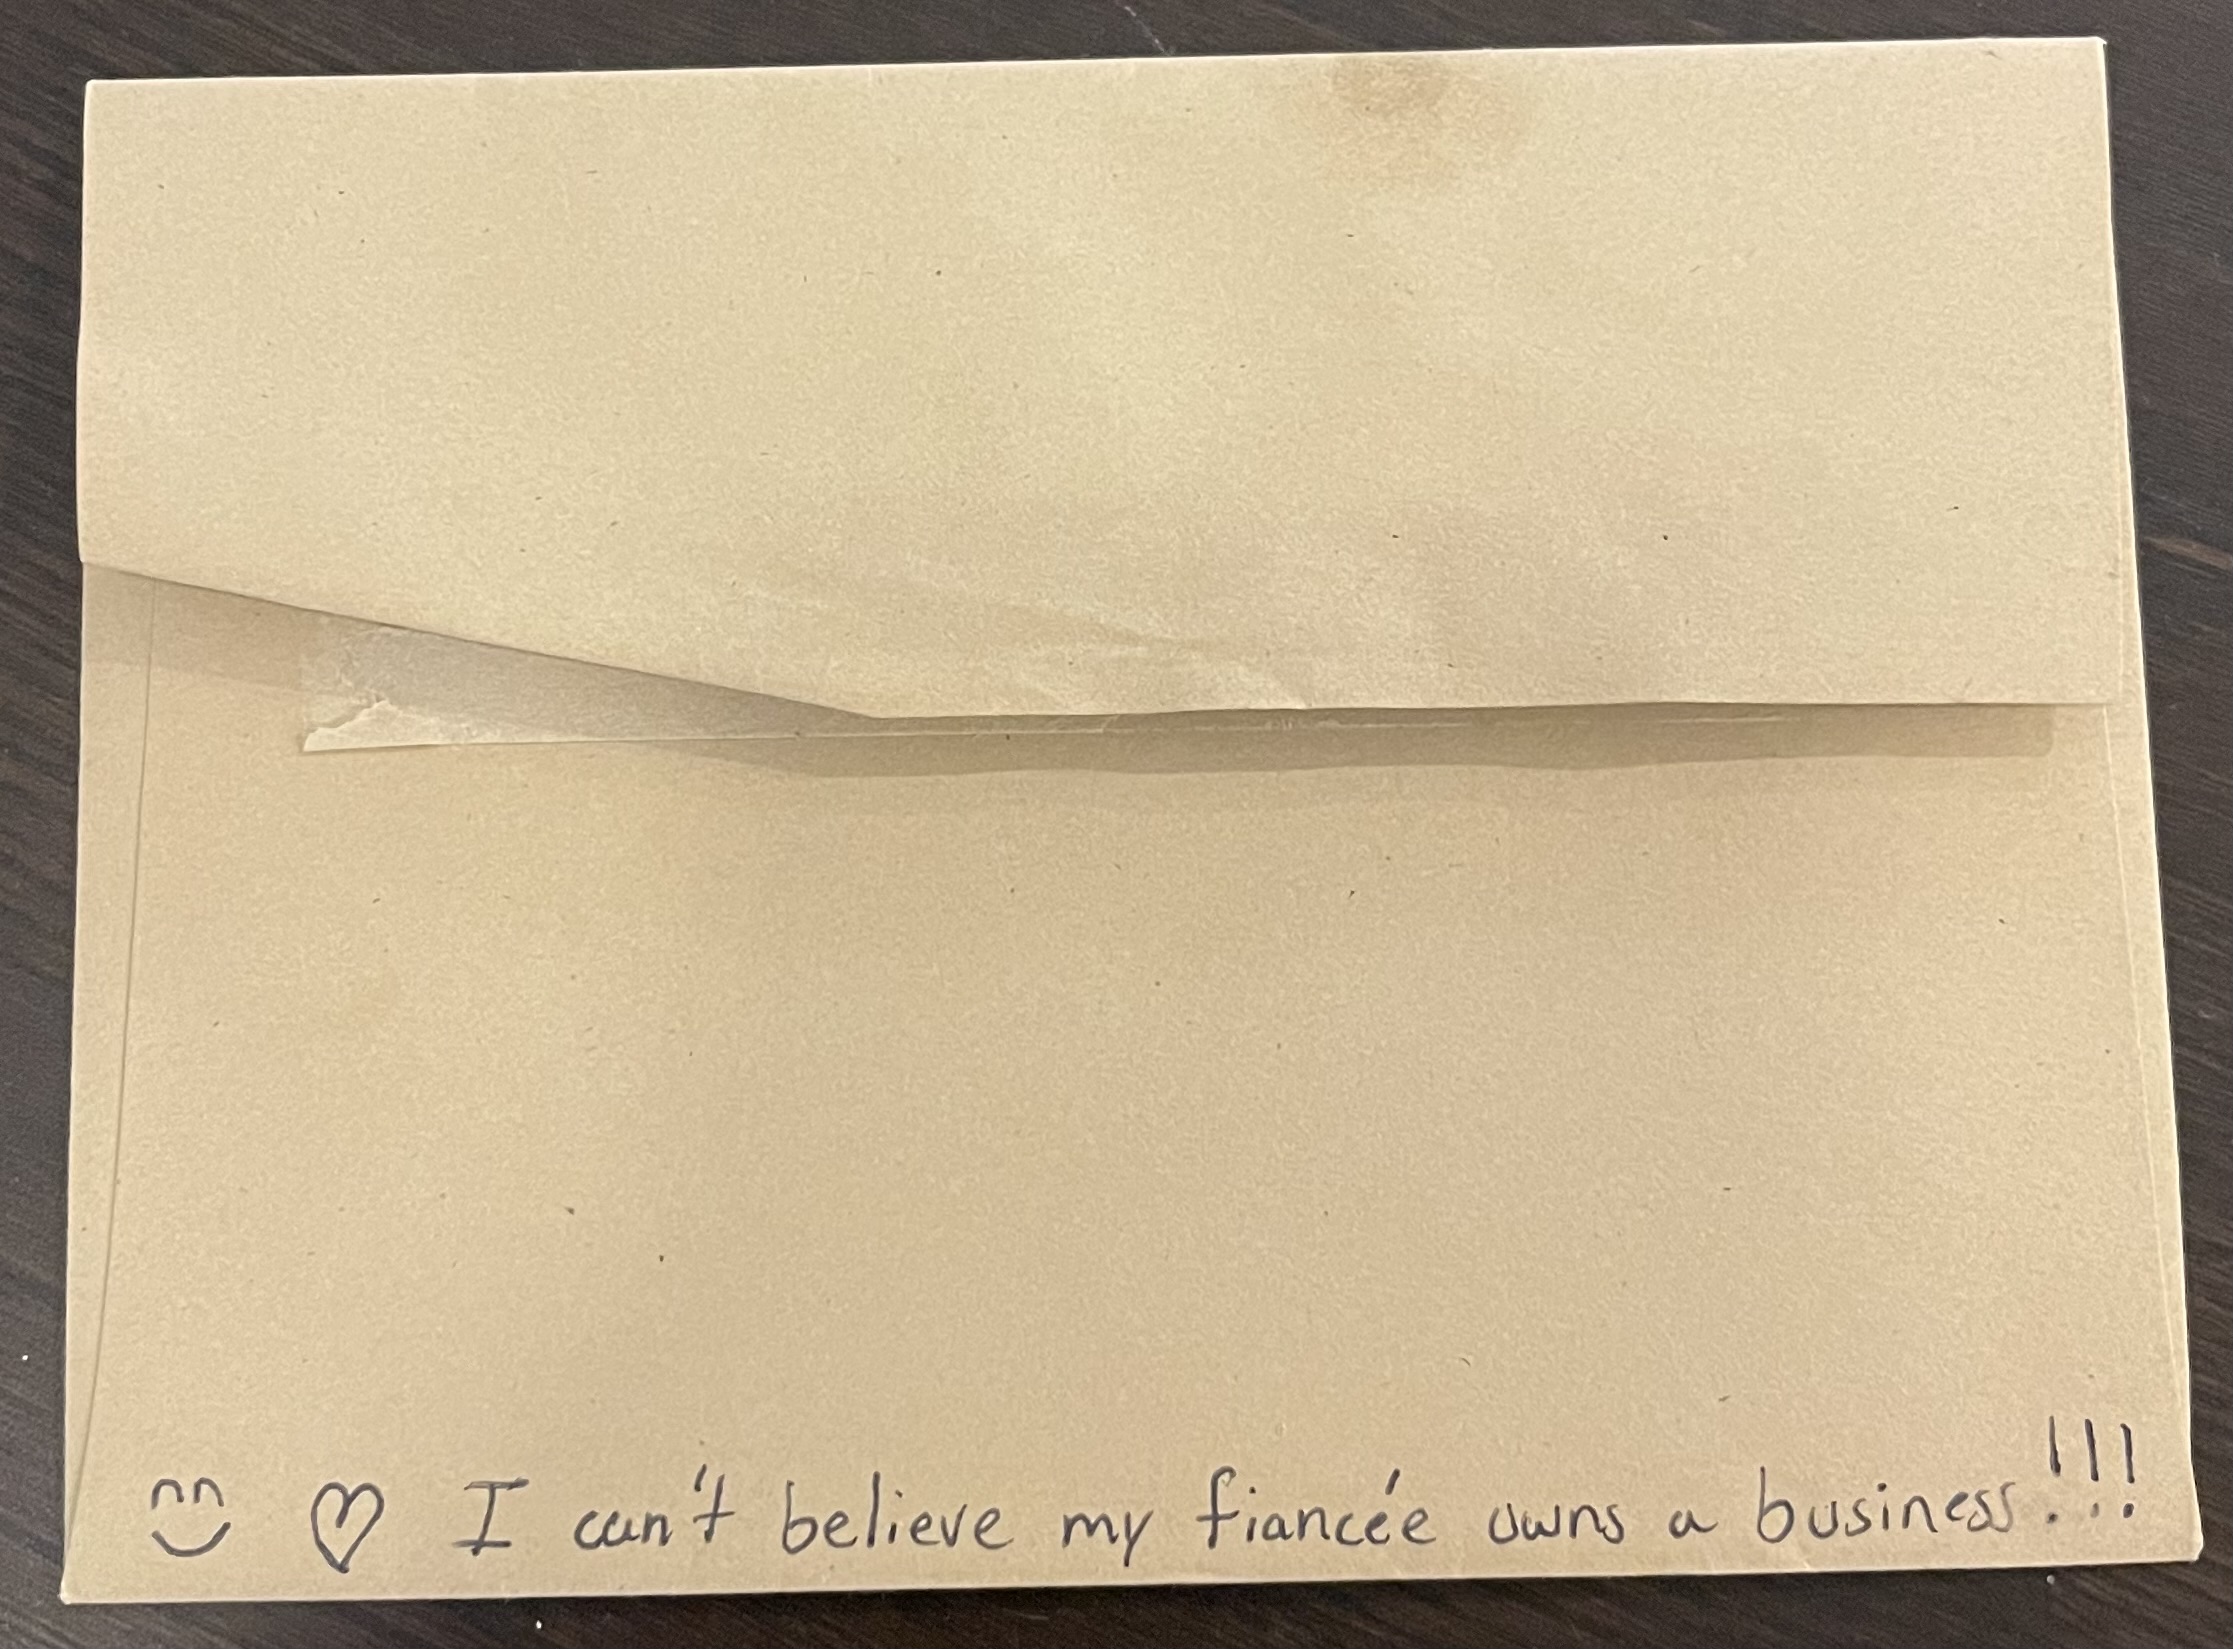 I can't believe my fiancée owns a business!!!